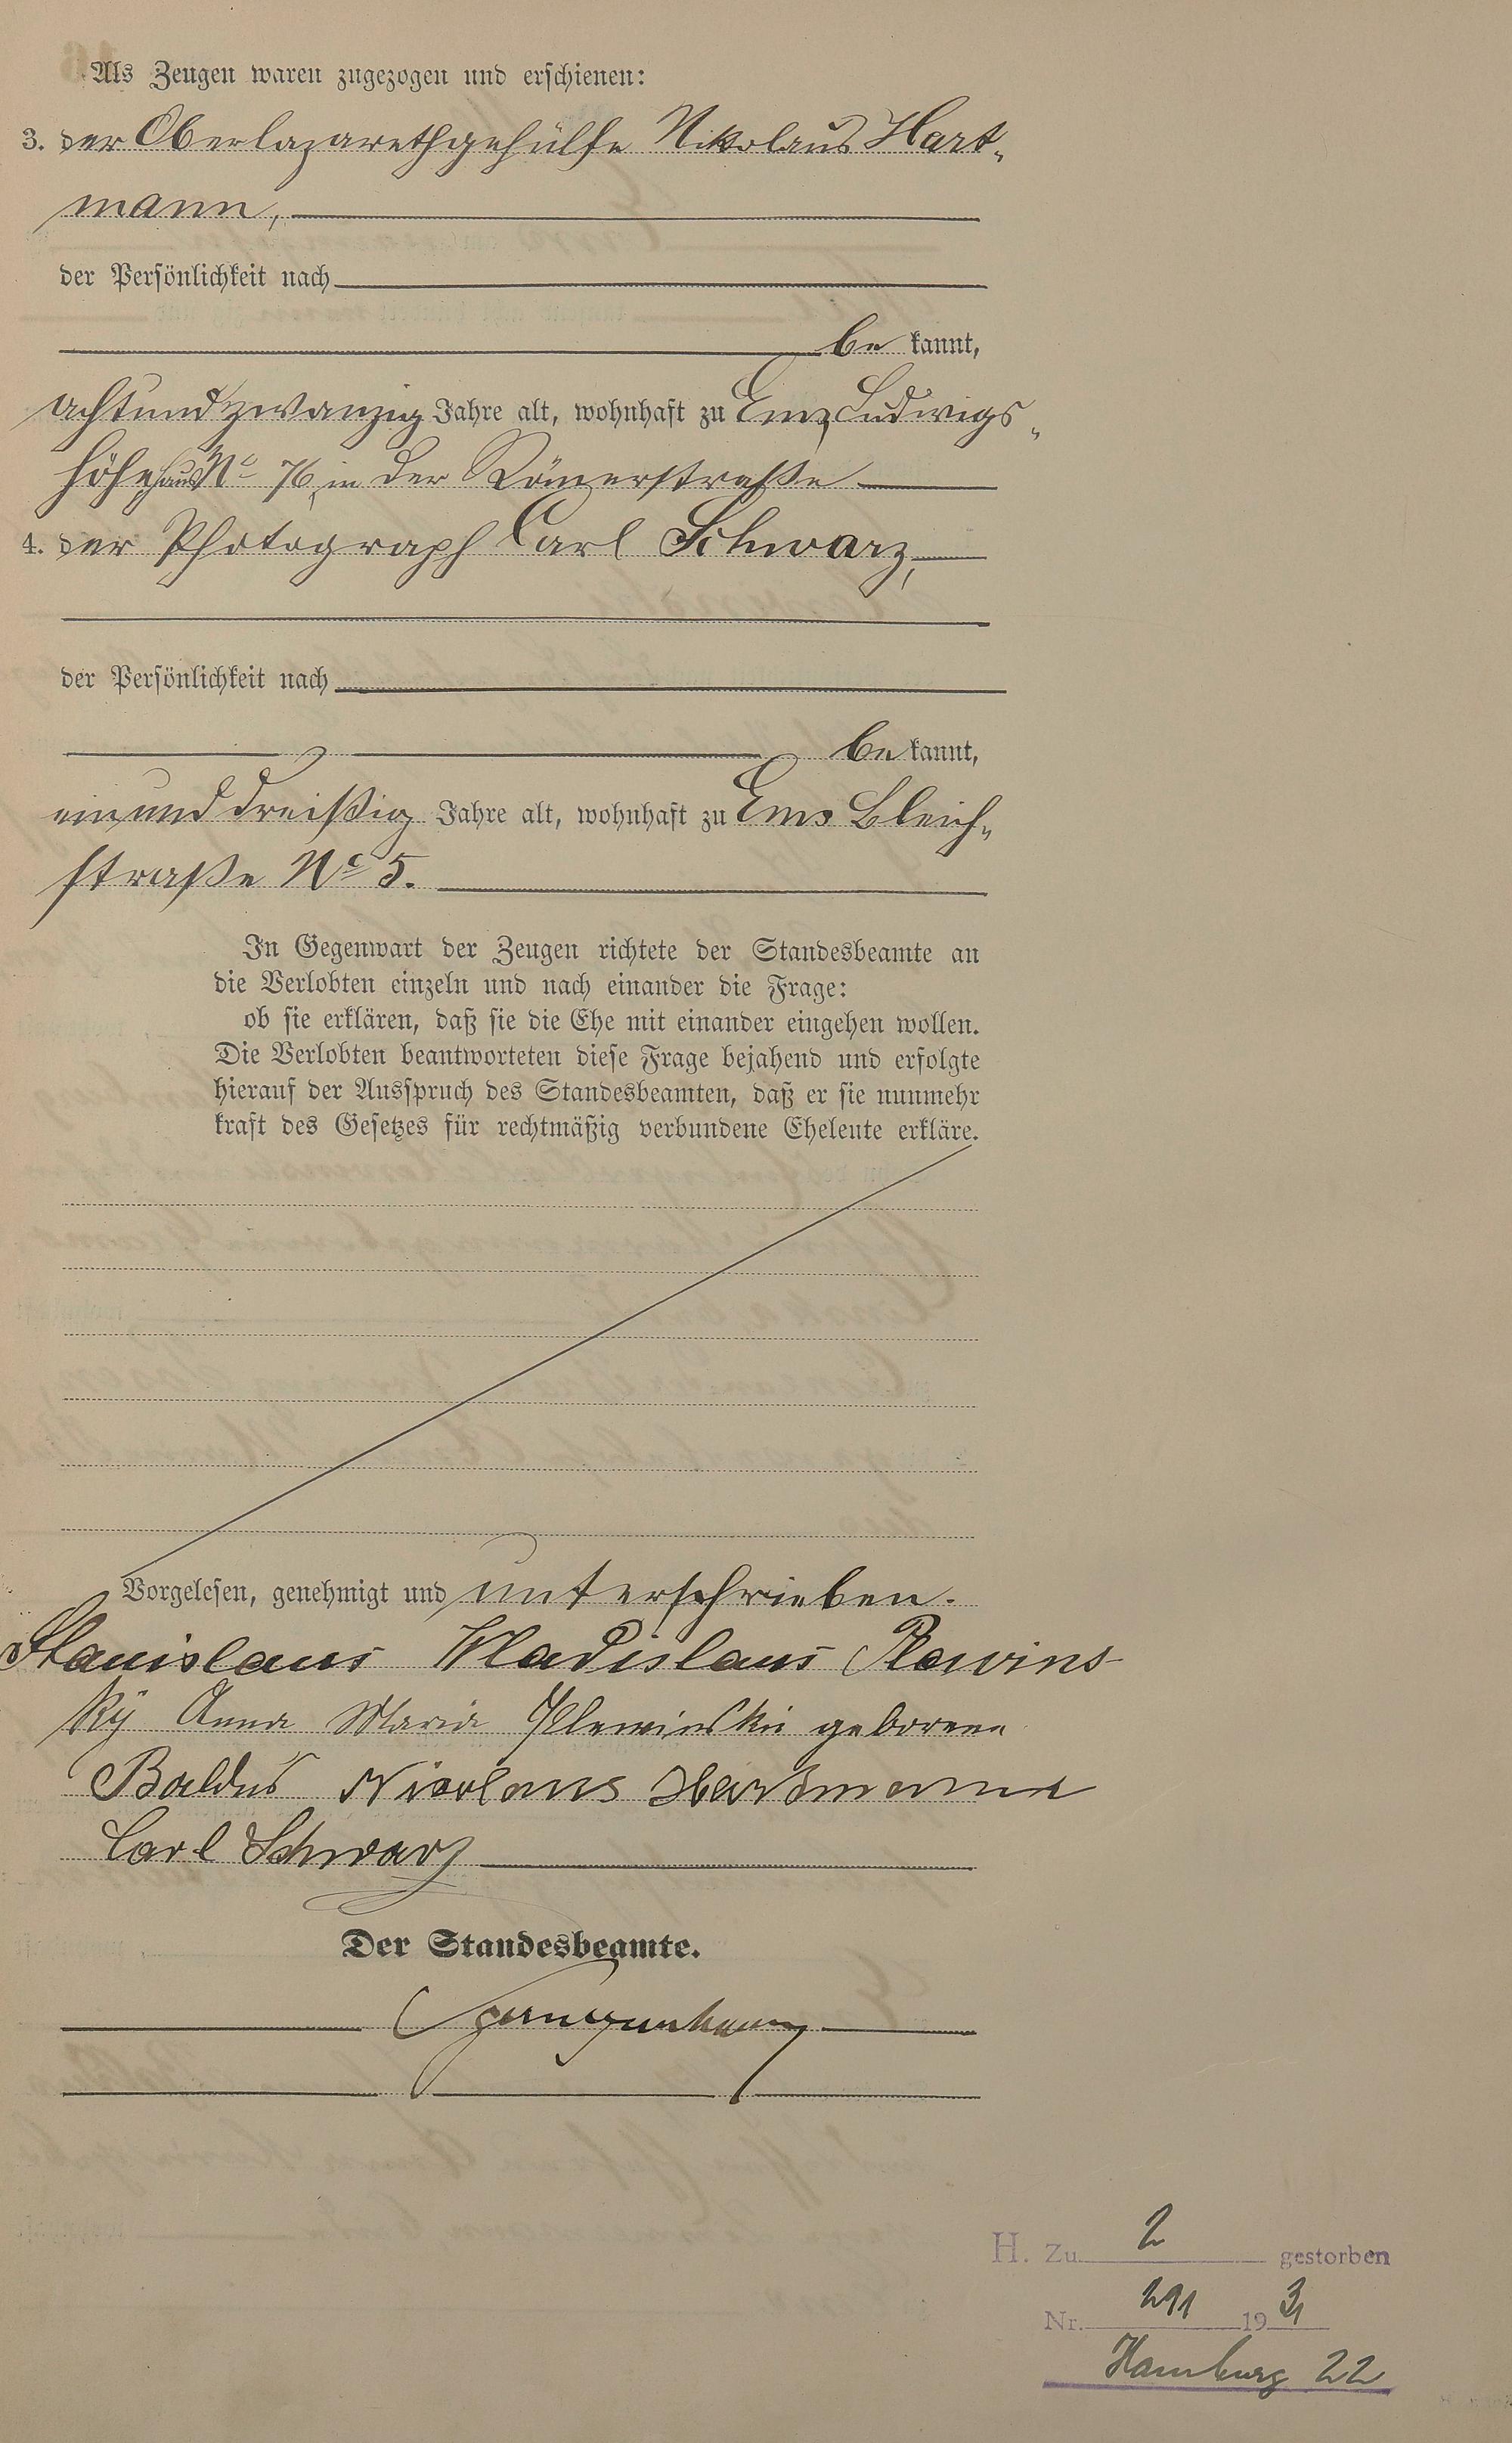 Als Zeugen waren zugezogen und erschienen:
3. der Oberlazarethgehülfe Nikolaus Hart-
mann,
der Persönlichkeit nach
be kannt,
achtundzwanzig Jahre alt, wohnhaft zu Ems, Ludwigs-
höhe, Haus No 76, in der Römerstraße
4. der Photograph Carl Schwarz,
der Persönlichkeit nach
be kannt,
einunddreißig Jahre alt, wohnhaft zu Ems Bleich-
straße No 5.
In Gegenwart der Zeugen richtete der Standesbeamte an
die Verlobten einzeln und nach einander die Frage:
ob sie erklären, daß sie die Ehe mit einander eingehen wollen.
Die Verlobten beantworteten diese Frage bejahend und erfolgte
hierauf der Ausspruch des Standesbeamten, daß er sie nunmehr
kraft des Gesetzes für rechtmäßig verbundene Eheleute erkläre.
Vorgelesen, genehmigt und unterschrieben.
Stanislaus Wladislaus Plewins
ky Anna Maria Plewinski geborene
Baldus Nicolaus Hartmann
Carl Schwarz
Der Standesbeamte.
H. Zu 2 gestorben
Nr. 291 1931
Hamburg 22